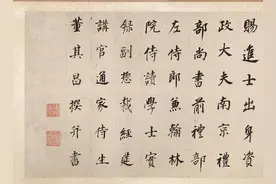 賜進士出身資
政大夫南京禮
部尚書前禮部
左侍郎兼翰林
院侍讀學士實
錄副總裁經筵
講官通家侍生
董其昌撰并書